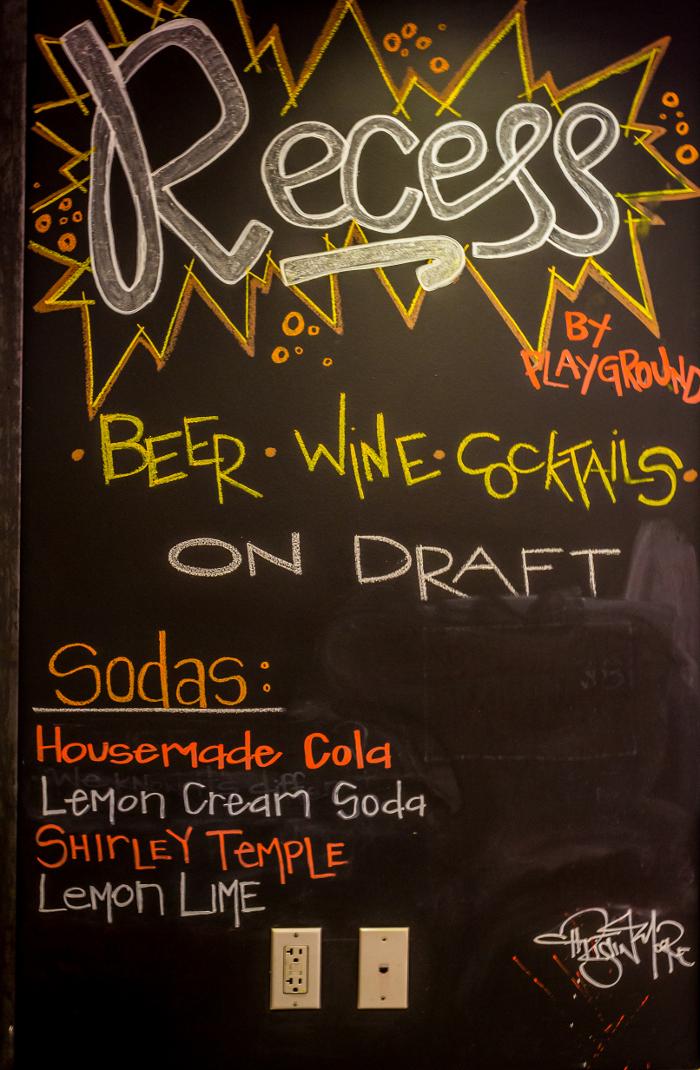 Recess
BY
PLAYGROUND
· BEER · WINE · COCKTAILS ·
ON DRAFT
Sodas:
Housemade Cola
Lemon Cream Soda
SHIRLEY TEMPLE
Lemon LIME